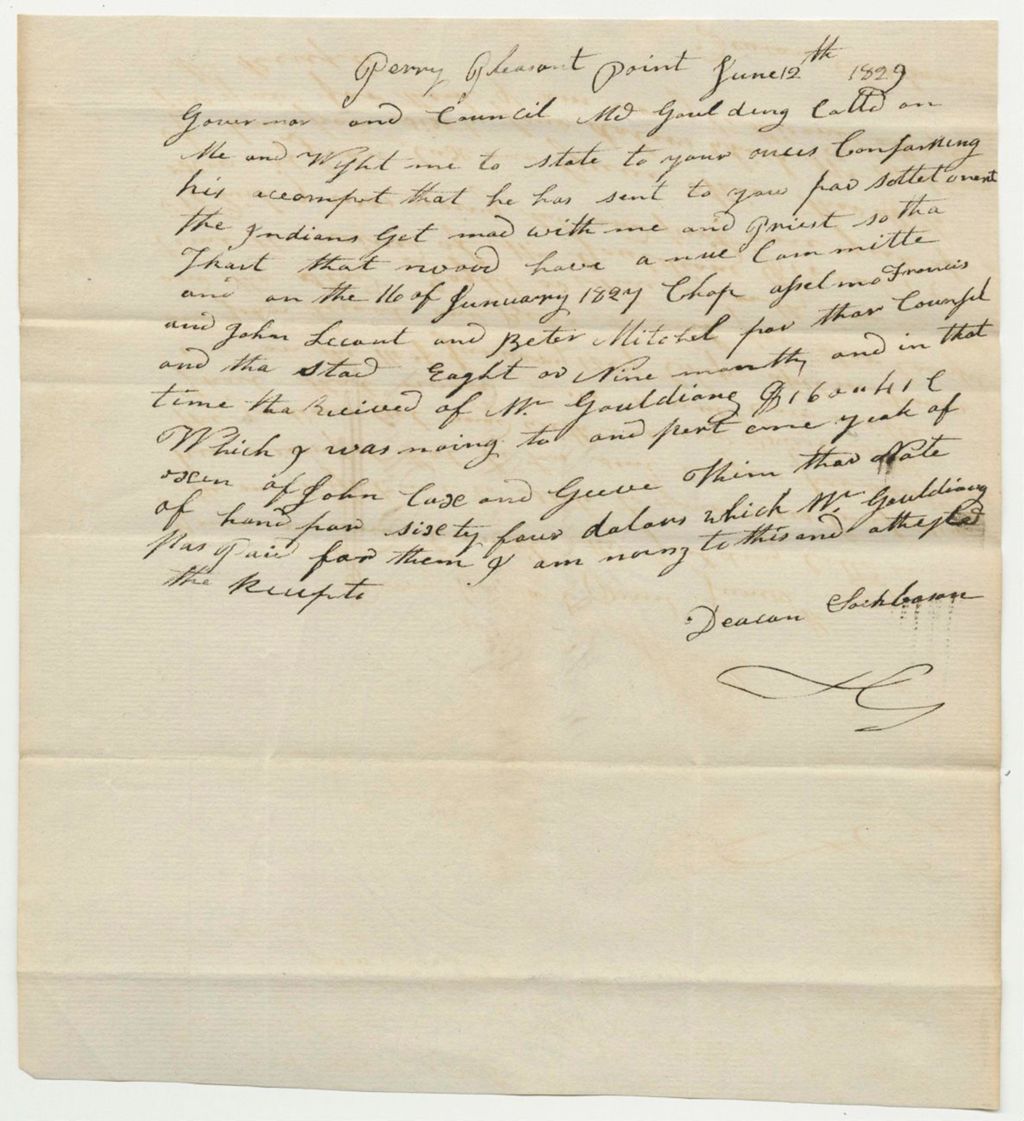 Perry Pleasant Point June 12th 1829
Governor and Council Mr Goulding Calld on
Me and Wisht me to state to your oners Consarning
his accompt that he has sent to you far settelment
the Indians Get mad with me and Priest so tha
that wood have a nue Committe
and on the 16 of Junuary 1827 Chose Francis
and John Lecout and Peter Mitchel for thar Counsel
and tha stad Eaght or Nine months and in that
time tha Reicived of Mr Gouldiang
Which I was noing to and pert one yoak of
oxen of John Case and Geeve Them thar Note
of hand far sixety four dolars which Mr Gouldiang
has Paid for them I am noing to this and
the Recepts
Deacon Sockbason